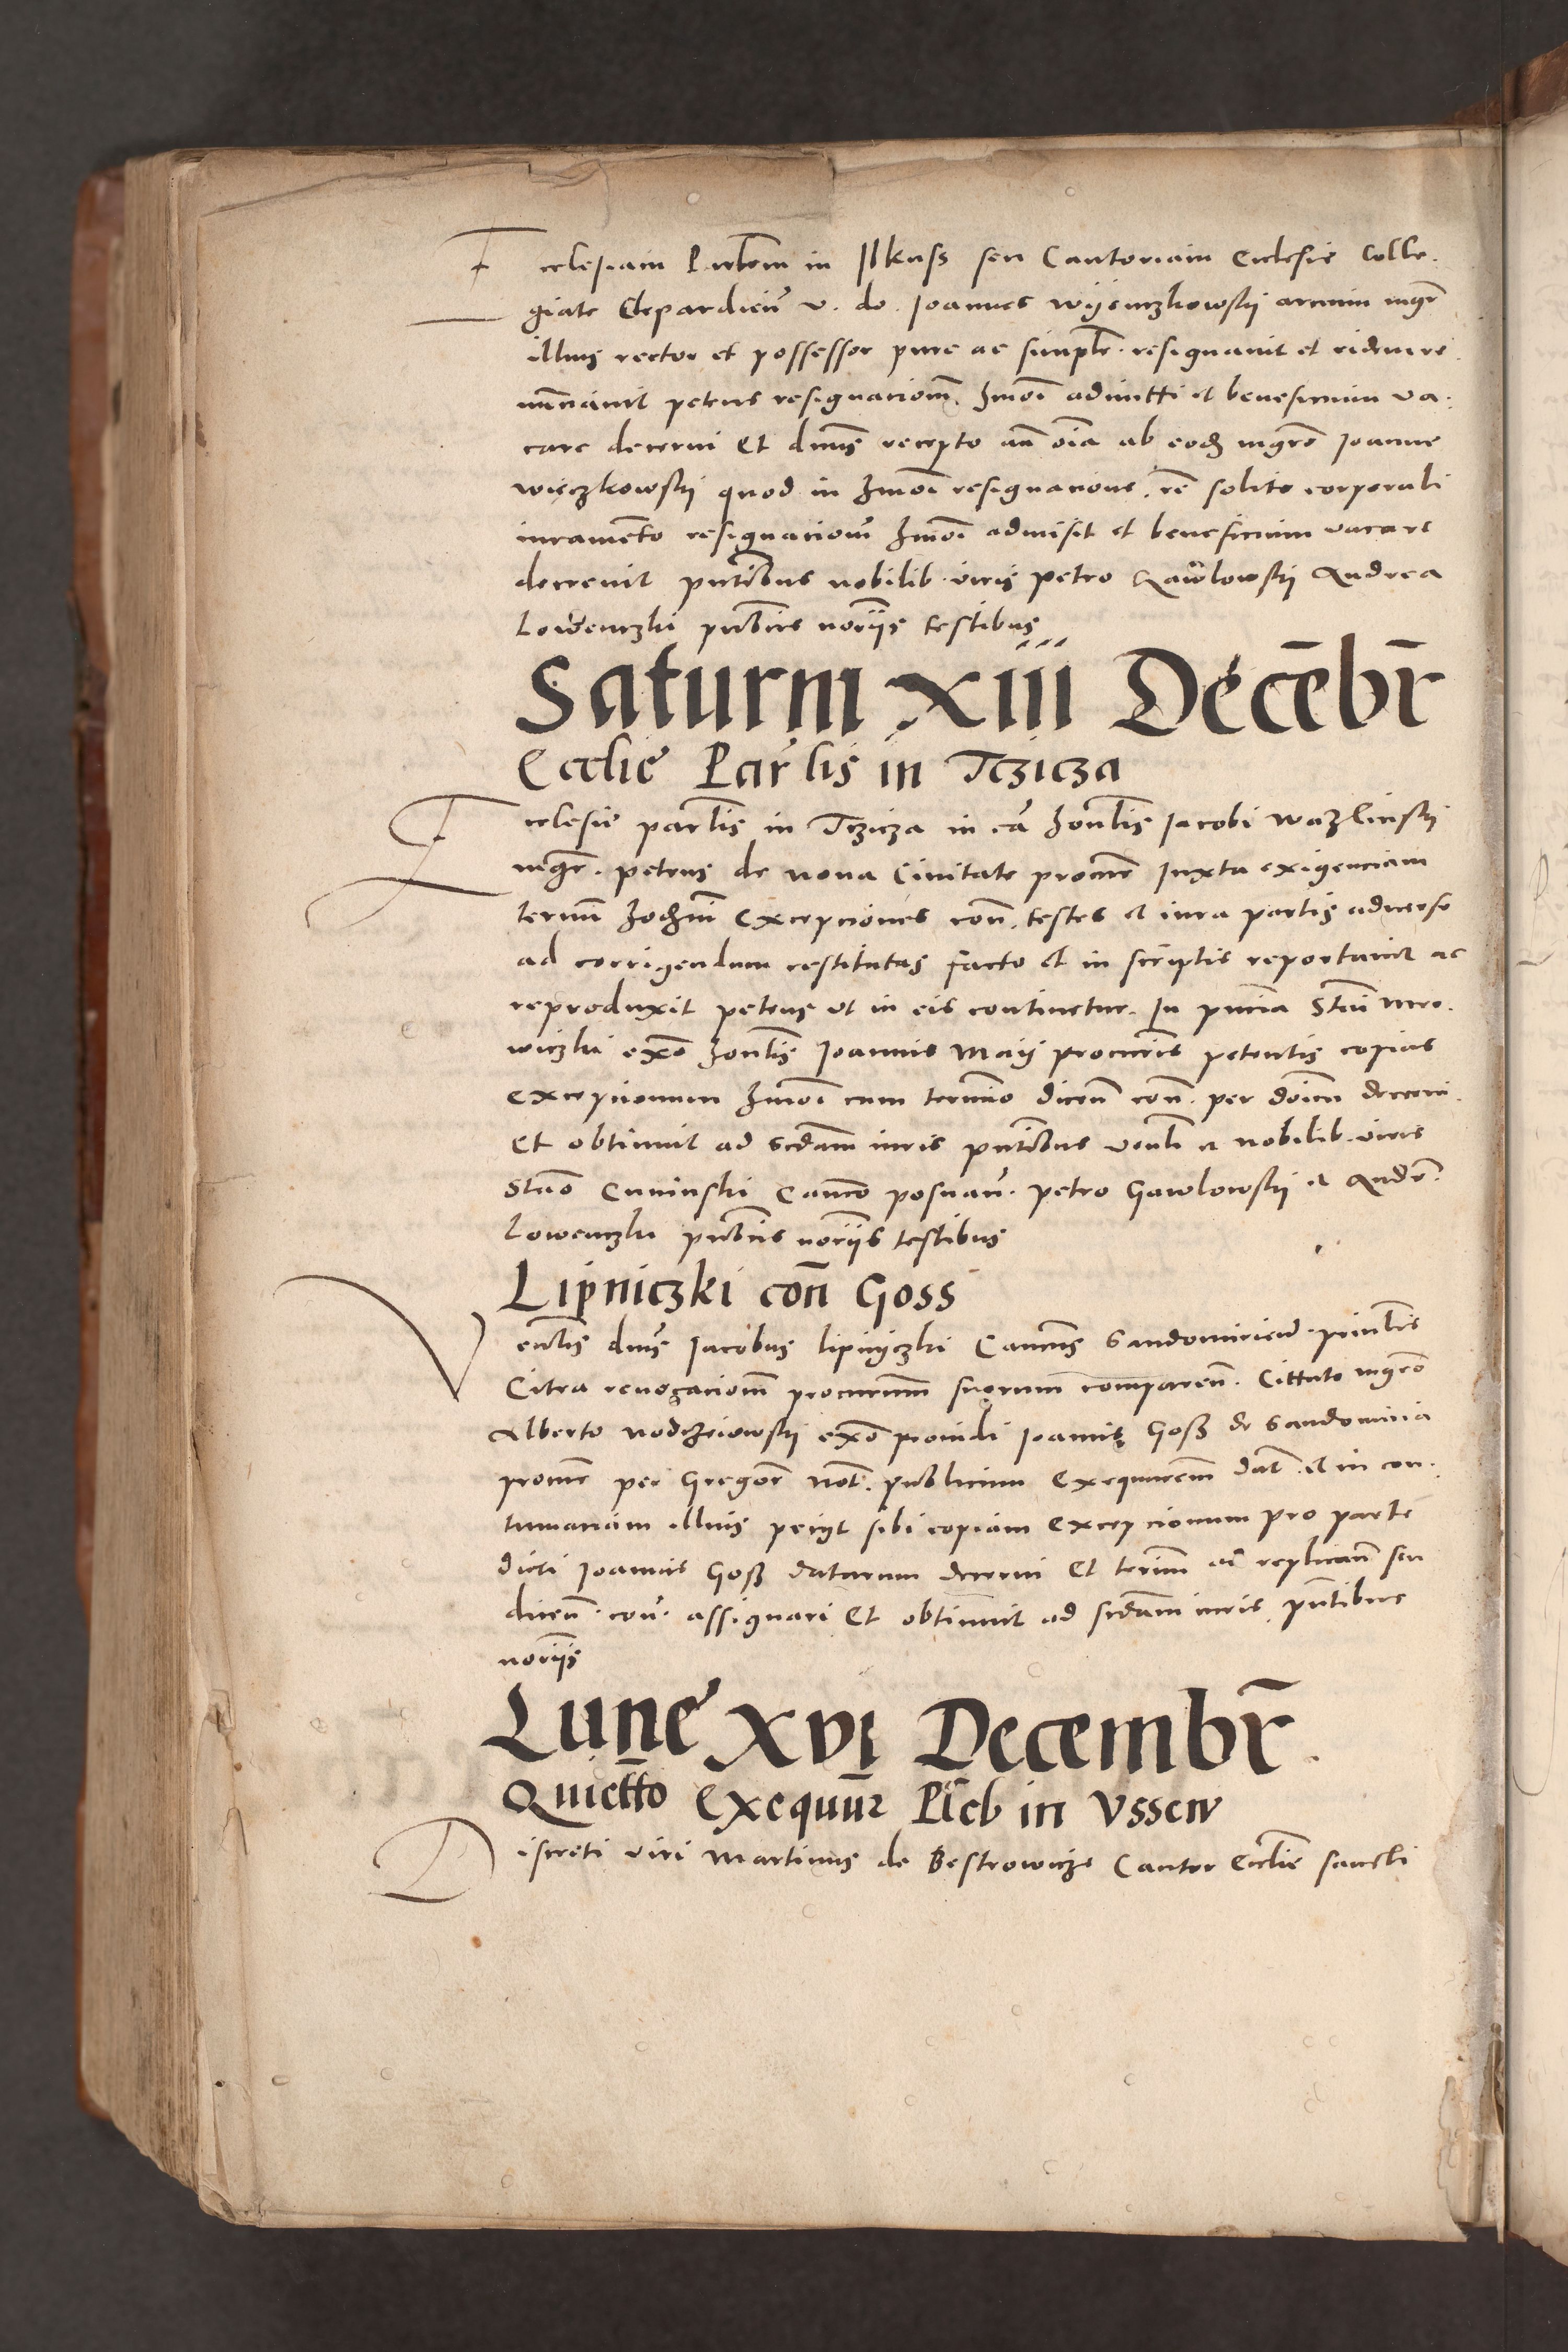 Ecclesiam Parlem in Ilkuss seu Cantoriam Ecclesie Colle-
giate Clepardien v. do. Ioannes Wyenczkowskij arcium mgr
illius rector et possessor pure ac simplr. resignavit et eidem re
nunciavit petens resignacionem hmoi admitti et beneficium va-
care decerni Et dnus recepto an oia ab eod mgro Ioanne
Wieczkowskij quod in hmoi resignacione rc solito corporali
iuramento resignacionem hmoi admisit et beneficium vacare
decrevit pntibus nobilib. viris Petro Gawlowskij Andrea
Lowenczki publicis noriis testibus
Saturni XIII Decēbr
Ecclie Parlis in Tczicza
Ecclesie parlis in Tczicza in ca honlis Iacobi Wazlinskij
mgr. petrus de nova Civitate procur Iuxta exigenciam
termi hodierni Excepciones con. testes et iura partis adverse
ad corrigendum restitutas facto et in scriptis reportavit ac
reproduxit petens ut in eis continetur. In pncia Stai Mro-
wiczki exo honlis Ioannis Maij procuris petentis copias
excepcionum hmoi cum termino dicen con. per doim decerni.
Et obtinuit ad scdam iuris pntibus venli et nobilib. viris
Stao Cuninski Canco posnan. Petro Gawlowskij et Andr.
Lowenczki publicis noriis testibus
Lipniczki con Goss
Venlis dnus Iacobus lipniczki Cancus Sandomirien. prinlis
Citra revocacionem procurum suorum comparen. Cittato mgro
Alberto Nodzeiowskij exo providi Ioannis Goss de Sandomiria
procur per Gregor Not. publicum Exequurem dat. et in con-
tumaciam illius peciyt sibi copiam Excepcionum pro parte
dicti Ioannis Goss datarum decerni Et termi ad replican seu
dicen. con. assignari Et obtinuit ad scdam iuris pntibus
noriis
Lune XVI Decembr
Quietto Exequur Pleb in Vssew
Discreti viri Martinus de Bestrowicze Cantor Ecclie sancti